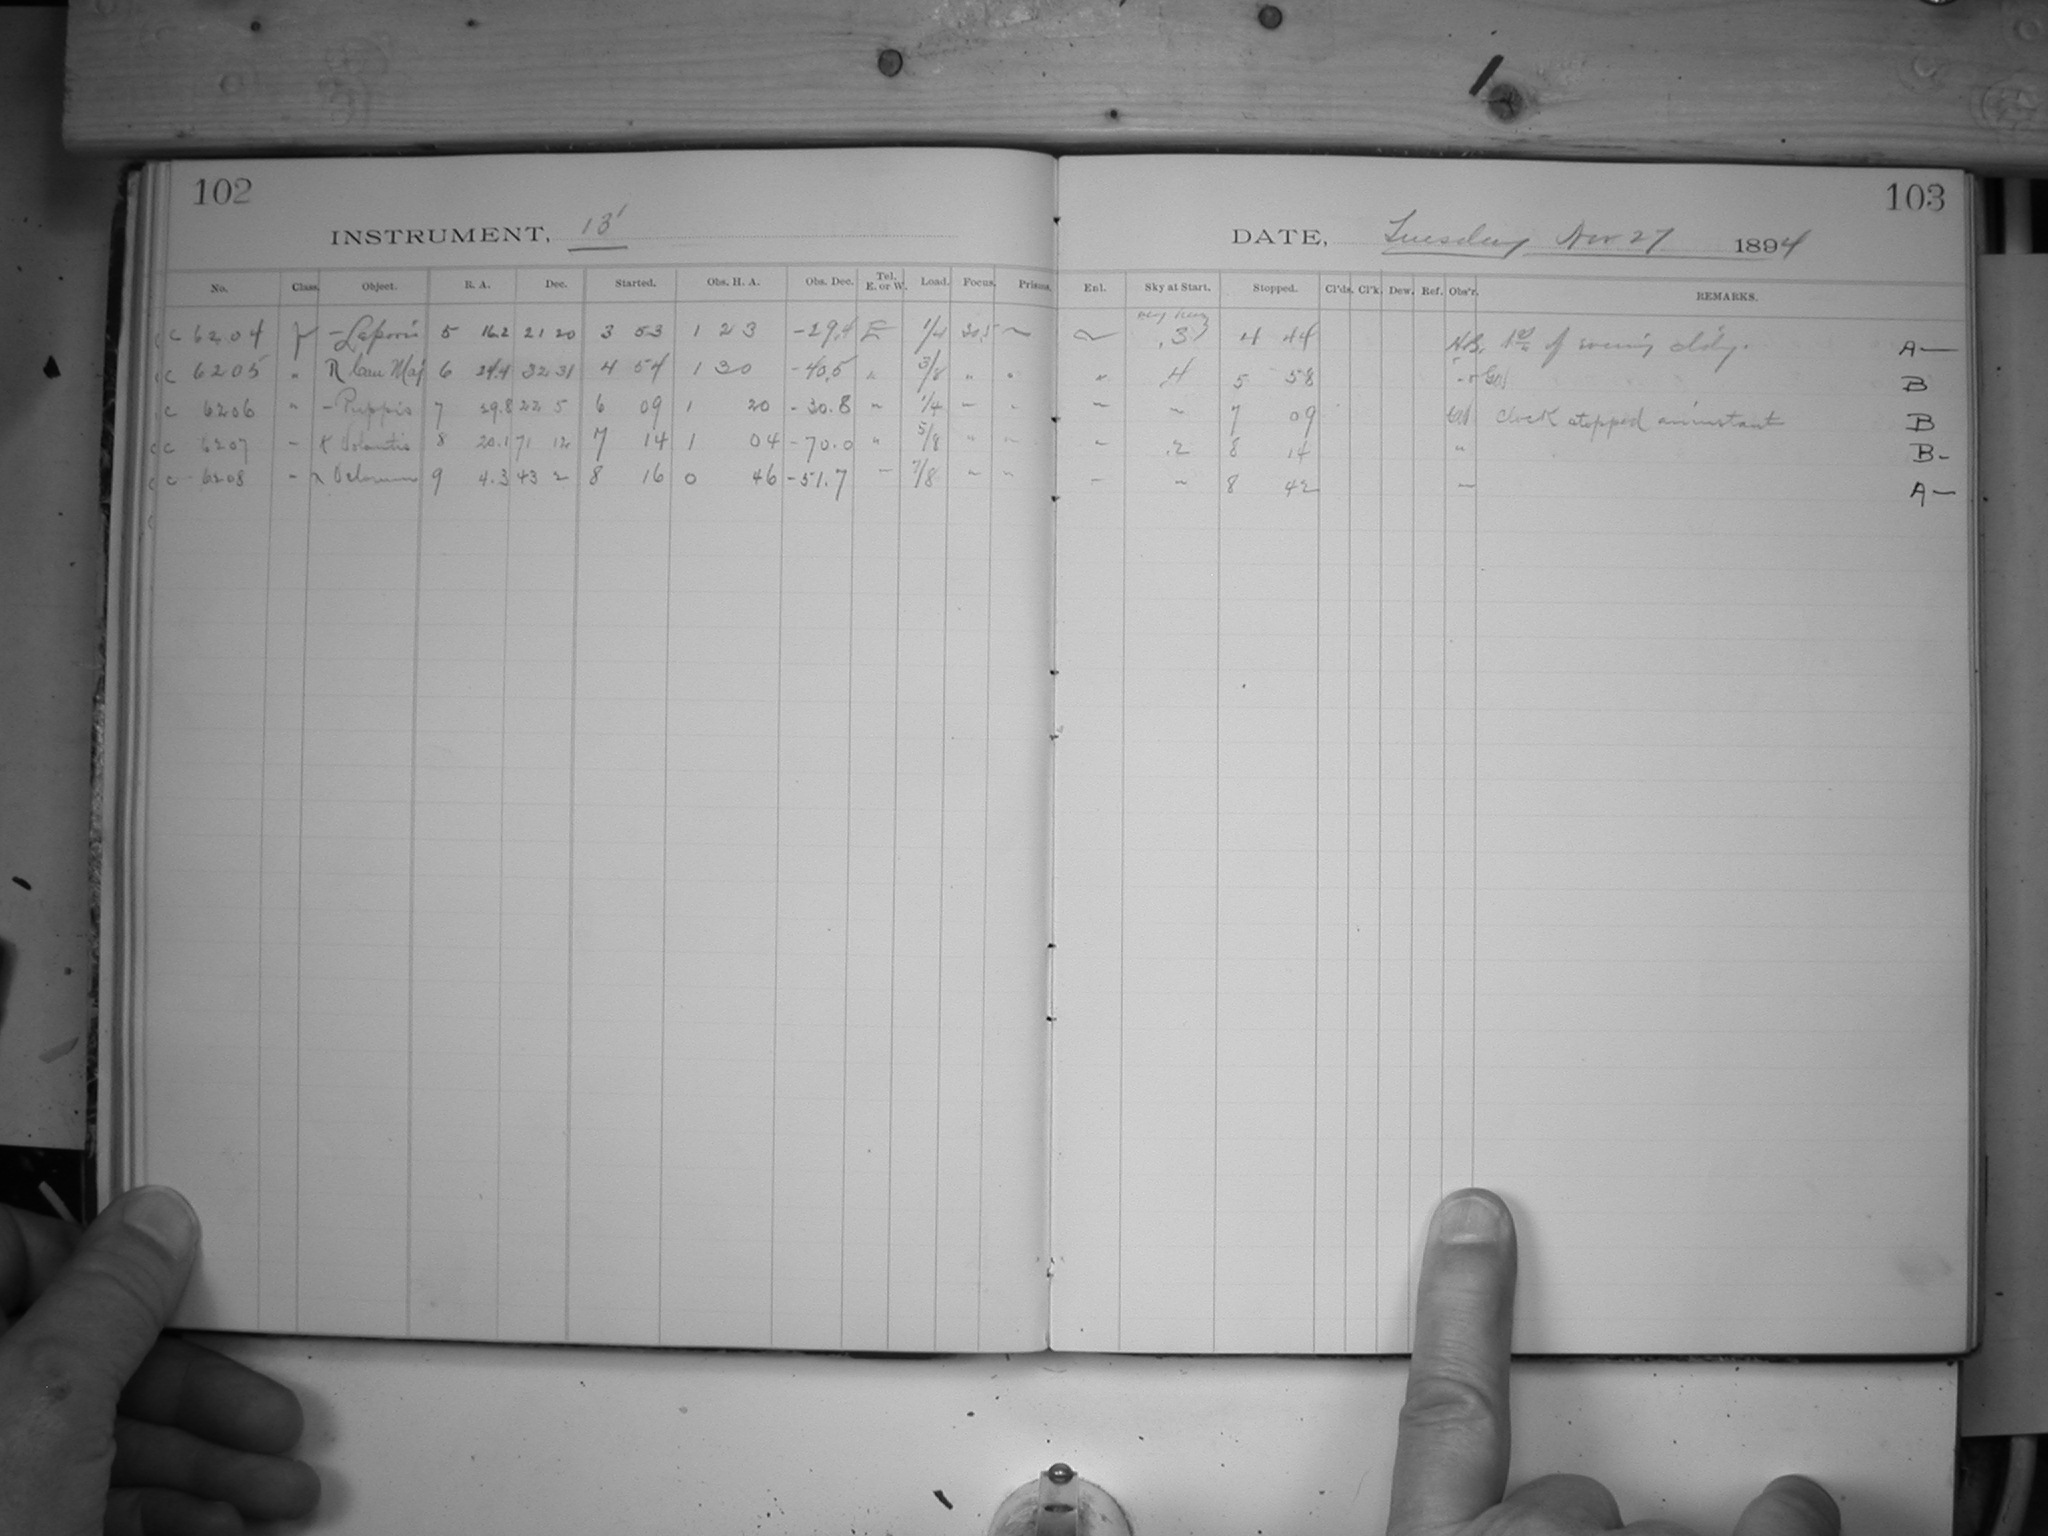 102
INSTRUMENT, 13'
No. Class. Object. R. A. Dec. Started. Obs. H. A. Obs. Dec. Tel. E. or W. Load. Focus. Prisms.
c 6204 - Leporis 5 16.2 21 20 3 53 1 23 -29.4 E 1/4 30.5 ~
c 6205 " R Can Maj 6 24.4 32 31 4 54 1 30 -40.5 " 3/8 " "
c 6206 " - Puppis 7 29.8 22 5 6 09 1 20 -30.8 " 1/4 - "
c 6207 - K Volantis 8 20.1 71 12 7 14 1 04 -70.0 " 5/8 " -
c 6208 - λ Velorum 9 4.3 43 2 8 16 0 46 -51.7 - 7/8 " -
103
DATE, Tuesday Nov 27 1894
Enl. Sky at Start. Stopped. Cl'ds. Cl'k. Dew. Ref. Obs'r. REMARKS.
~ 3 4 44 1st of evening A-
" 4 5 58 B
- " 7 09 Clock stopped an instant B
" .2 8 14 " B-
- " 8 42 - A-